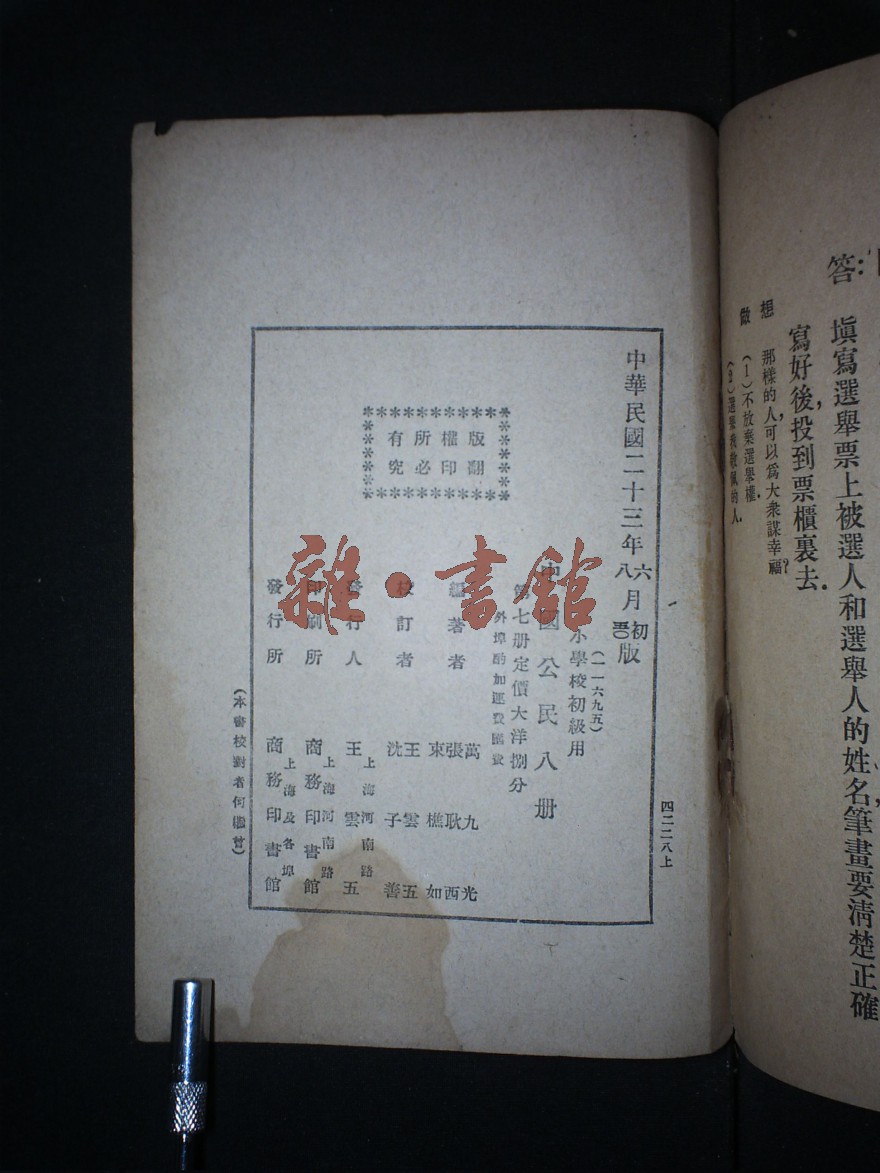 答：
填寫選舉票上被選人和選舉人的姓名，筆畫要清楚正確
寫好後，投到票櫃裏去．
想　那樣的人，可以爲大衆謀幸福？
做　(1)不放棄選舉權．
(2)選舉我敬佩的人．
四二二八上
中華民國二十三年六月初版
八
(一一六九五)
小學校初級用
國公民八册
第七册定價大洋捌分
外埠酌加運費匯費
版權所有
翻印必究
編著者
萬九光
張耿西
束樵如
校訂者
王雲五
沈子善
發行人
王雲五
上海河南路
印刷所
商務印書館
上海河南路
發行所
商務印書館
上海及各埠
(本書校對者何
雜·書館